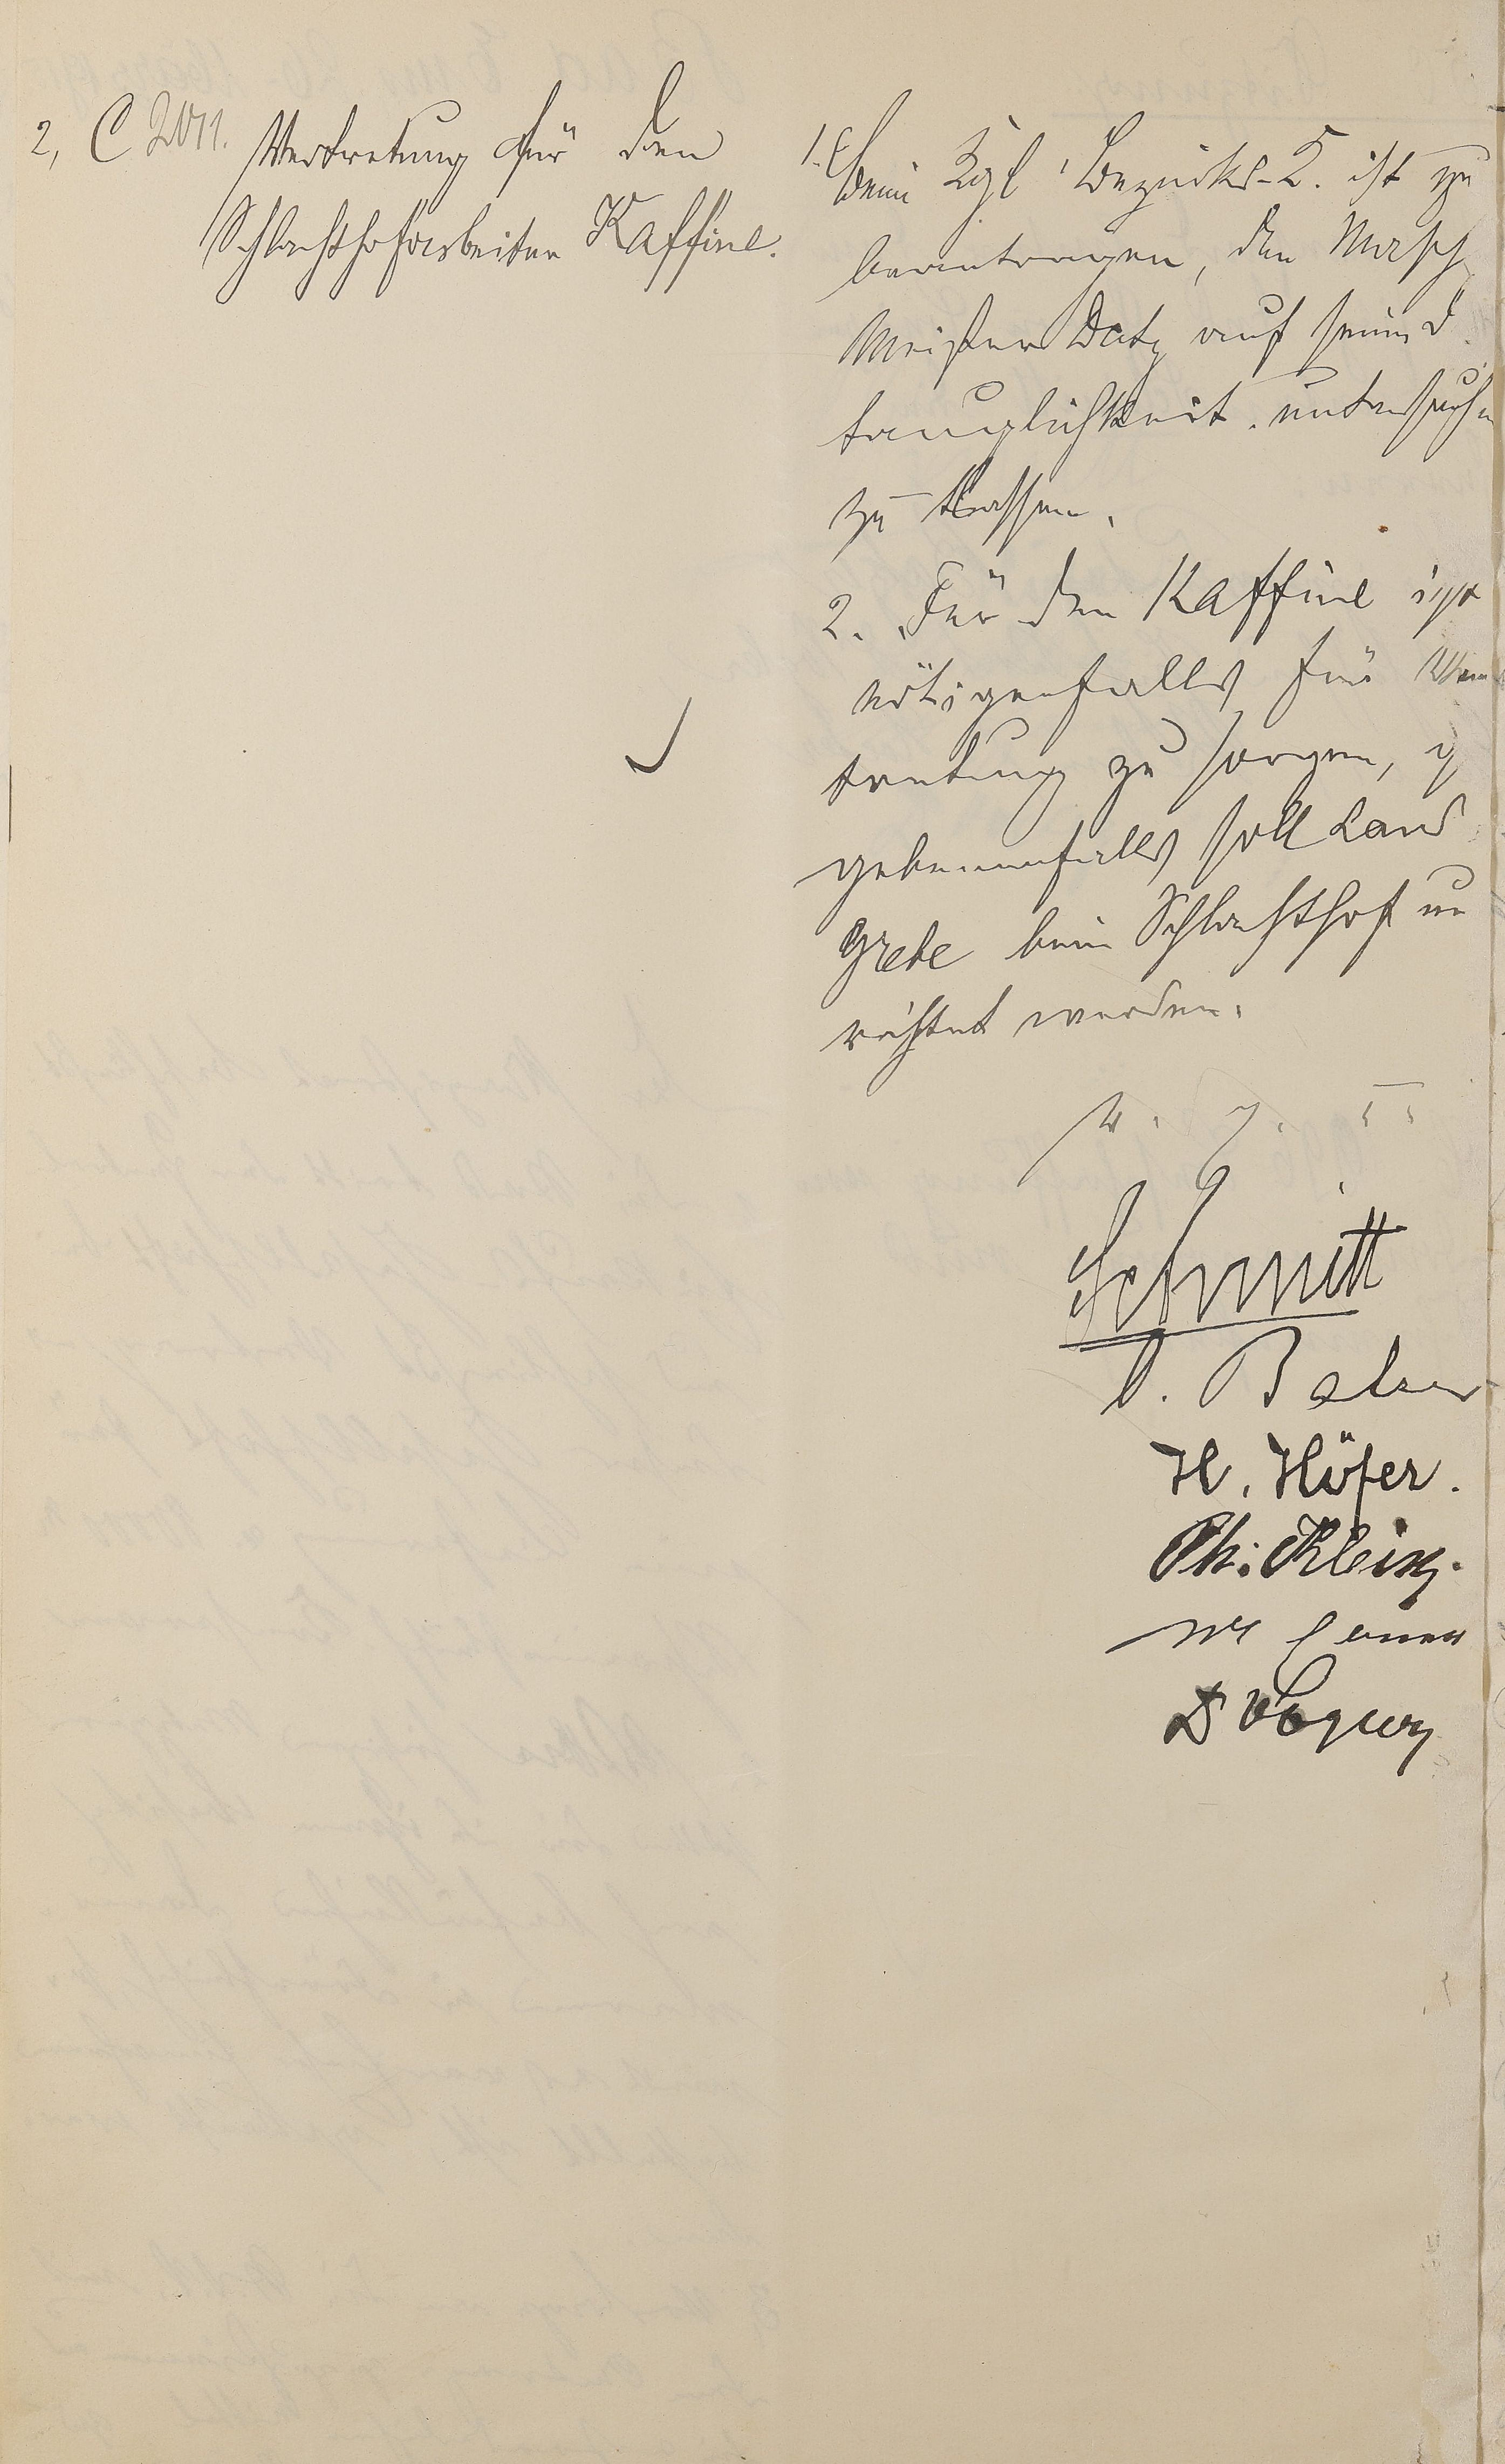 2, C 2011. Vertretung für den
Schlachthofarbeiter Kaffine.
1. Beim Kgl. Bezirks-K. ist zu
beantragen, den Masch
Meister Datz auf seine D
tauglichkeit untersuchen
zu lassen.
2. Für den Kaffine ist
nötigenfalls für Ver
tretung zu sorgen, g
gebenenfalls soll Land
Grebe beim Schlachthof un
richtet werden.
v. g. u.
Schmitt
Balzer
H. Höfer.
Ph: Klein